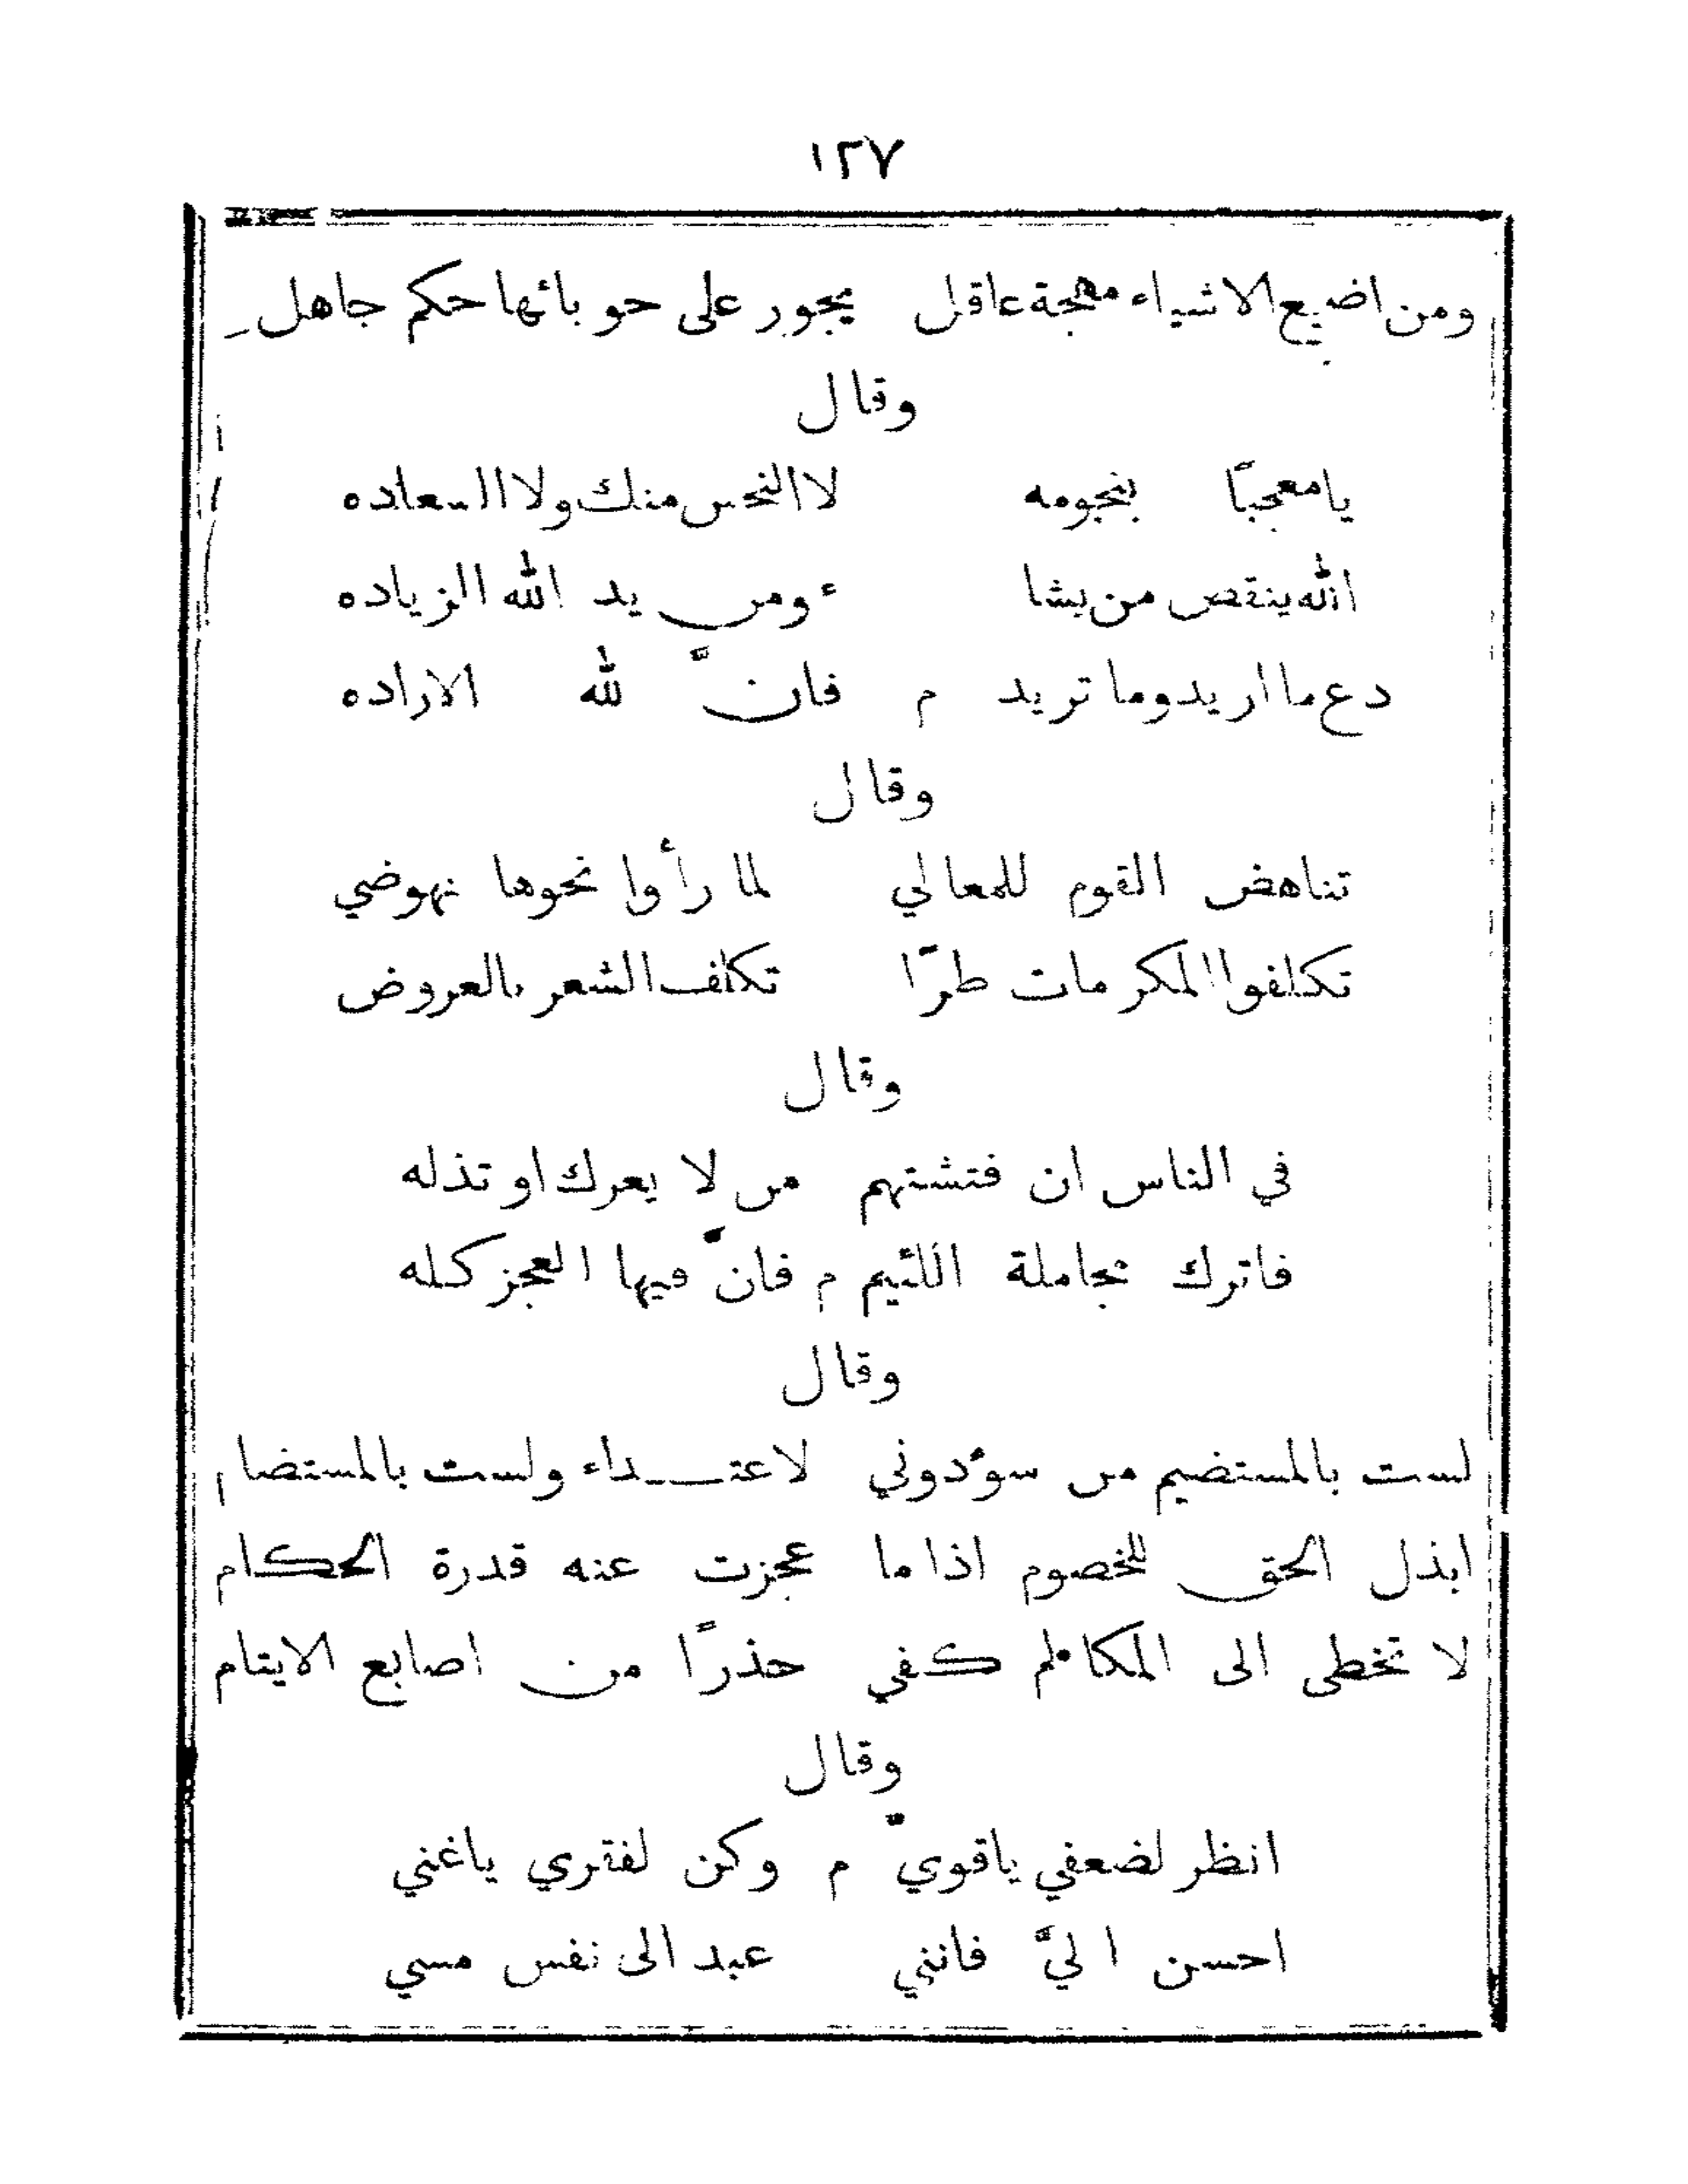 ١٢٧
ومن اضيع الاشياء مهجة عاقل يجور على حوبائها حكم جاهل
وقال
يا معجبًا بنجومه لا النحس منك ولا السعاده
الله ينقص من يشا ء ومن يد الله الزياده
دع ما اريد وما تريد م فانَّ لله الاراده
وقال
تناهض القوم للمعالي لما رأوا نحوها نهوضي
تكلفوا المكرمات طرًّا تكلف الشعر بالعروض
وقال
في الناس ان فتشتهم من لا يعزك او تذله
فاترك مجاملة اللئيم م فانّ فيها العجز كله
وقال
لست بالمستضيم من سؤدوني لاعتـــداء ولست بالمستضام
ابذل الحق للخصوم اذا ما عجزت عنه قدرة الحكام
لا تخطى الى المكالم كفي حذرًا من اصابع الايتام
وقال
انظر لضعفي ياقويّ م وكن لفقري ياغني
احسن اليَّ فانني عبد الى نفس مسي